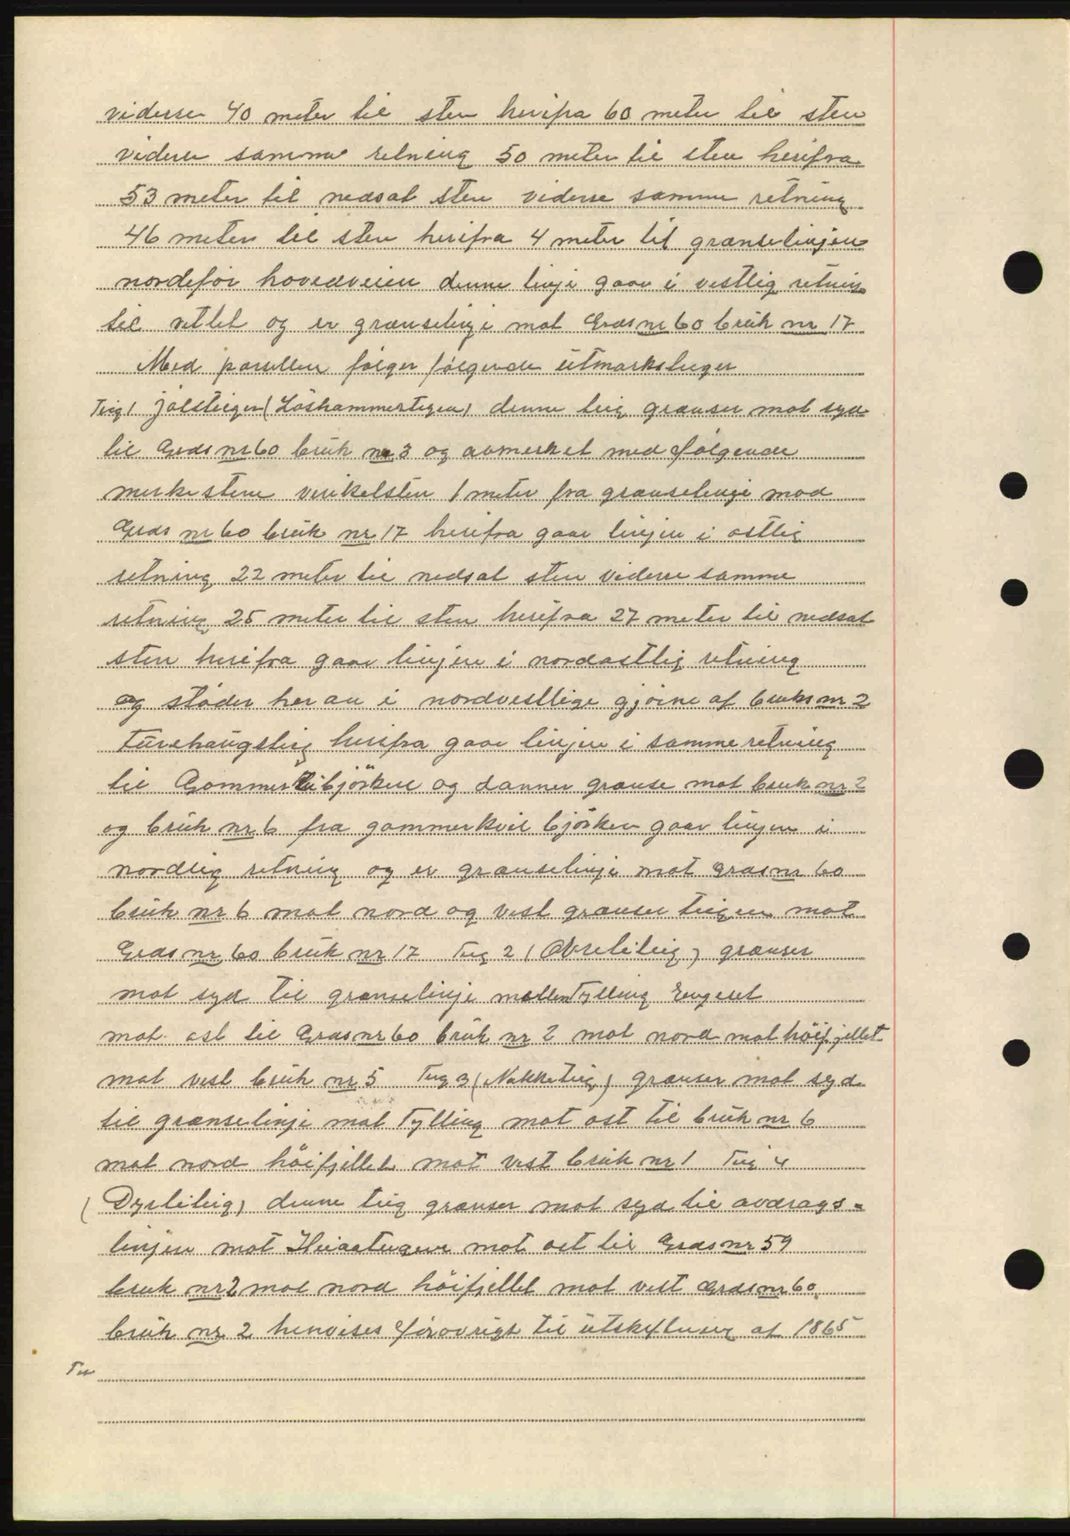 viderse 40 meter til sten herifra 60 meter til sten
videre samme retning 50 meter til sten herifra
53 meter til nedsat sten viderse samme retning
46 meter til sten herifra 4 meter til grænselinjen
nordefor hovedveien denne linje gaar i vestlig retning
til og er grænselinje mot Grds nr 60 bruk nr 17
Med parsellen følger følgende utmarksteiger
Teig 1 Jølsteigen (Løshammertegen) denne teig grænser mot syd
til Grds nr 60 bruk nr 3 og avmerket med følgende
merkestene vinkelsten 1 meter fra grænselinje mod
Grds nr 60 bruk nr 17 herifra gaar linjen i østlig
retning 22 meter til nedsat sten videre samme
retning 25 meter til sten herifra 27 meter til nedsat
sten herifra gaar linjen i nordøstlig retning
og støder her an i nordvestlige gjørne af bruks nr 2
herifra gaar linjen i samme retning
til bjørken og danner grænse mot bruk nr 2
og bruk nr 6 fra gammerkvil bjørken gaar linjen i
nordlig retning og er grænselinje mot Grds nr 60
bruk nr 6 mot nord og vest grænser teigen mot
Grds nr 60 bruk nr 17 Teig 2 (Øvreliteig) grænser
mot syd til grænselinje mellem Tylling Engeset
mot øst til Grds nr 60 bruk nr 2 mot nord mot høifjellet
mot vest bruk nr 5 Teig 3 (Nakketeig) grænser mot syd
til grænselinje mot Tylling mot øst til bruk nr 6
mot nord høifjellet mot vest bruk nr 1 Teig 4
(Dysteteig) denne teig grænser mot syd til avdrags=
linjen mot mot øst til Grds nr 59
bruk nr 2 mot nord høifjellet mot vest Grds nr 60
bruk nr 2 henvises forøvrigt til utskiftning af 1865